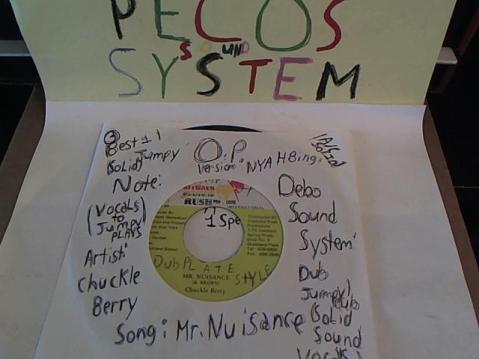 PECOS
SOUND
SYSTEM
Best 1!
(Solid) Jumpy
Note:
(Vocals)
to
Jumpy
Artist:
Chuckle
Berry
O.P
Version:
NYAHBingi
Debo
Sound
System
Dub
Jumpy) Dub
(Solid
Sound
RUSH
1 Spe
DubPLATE
STYLE
MR. NUISANCE
Chuckle Berry
Song: Mr. Nuisance